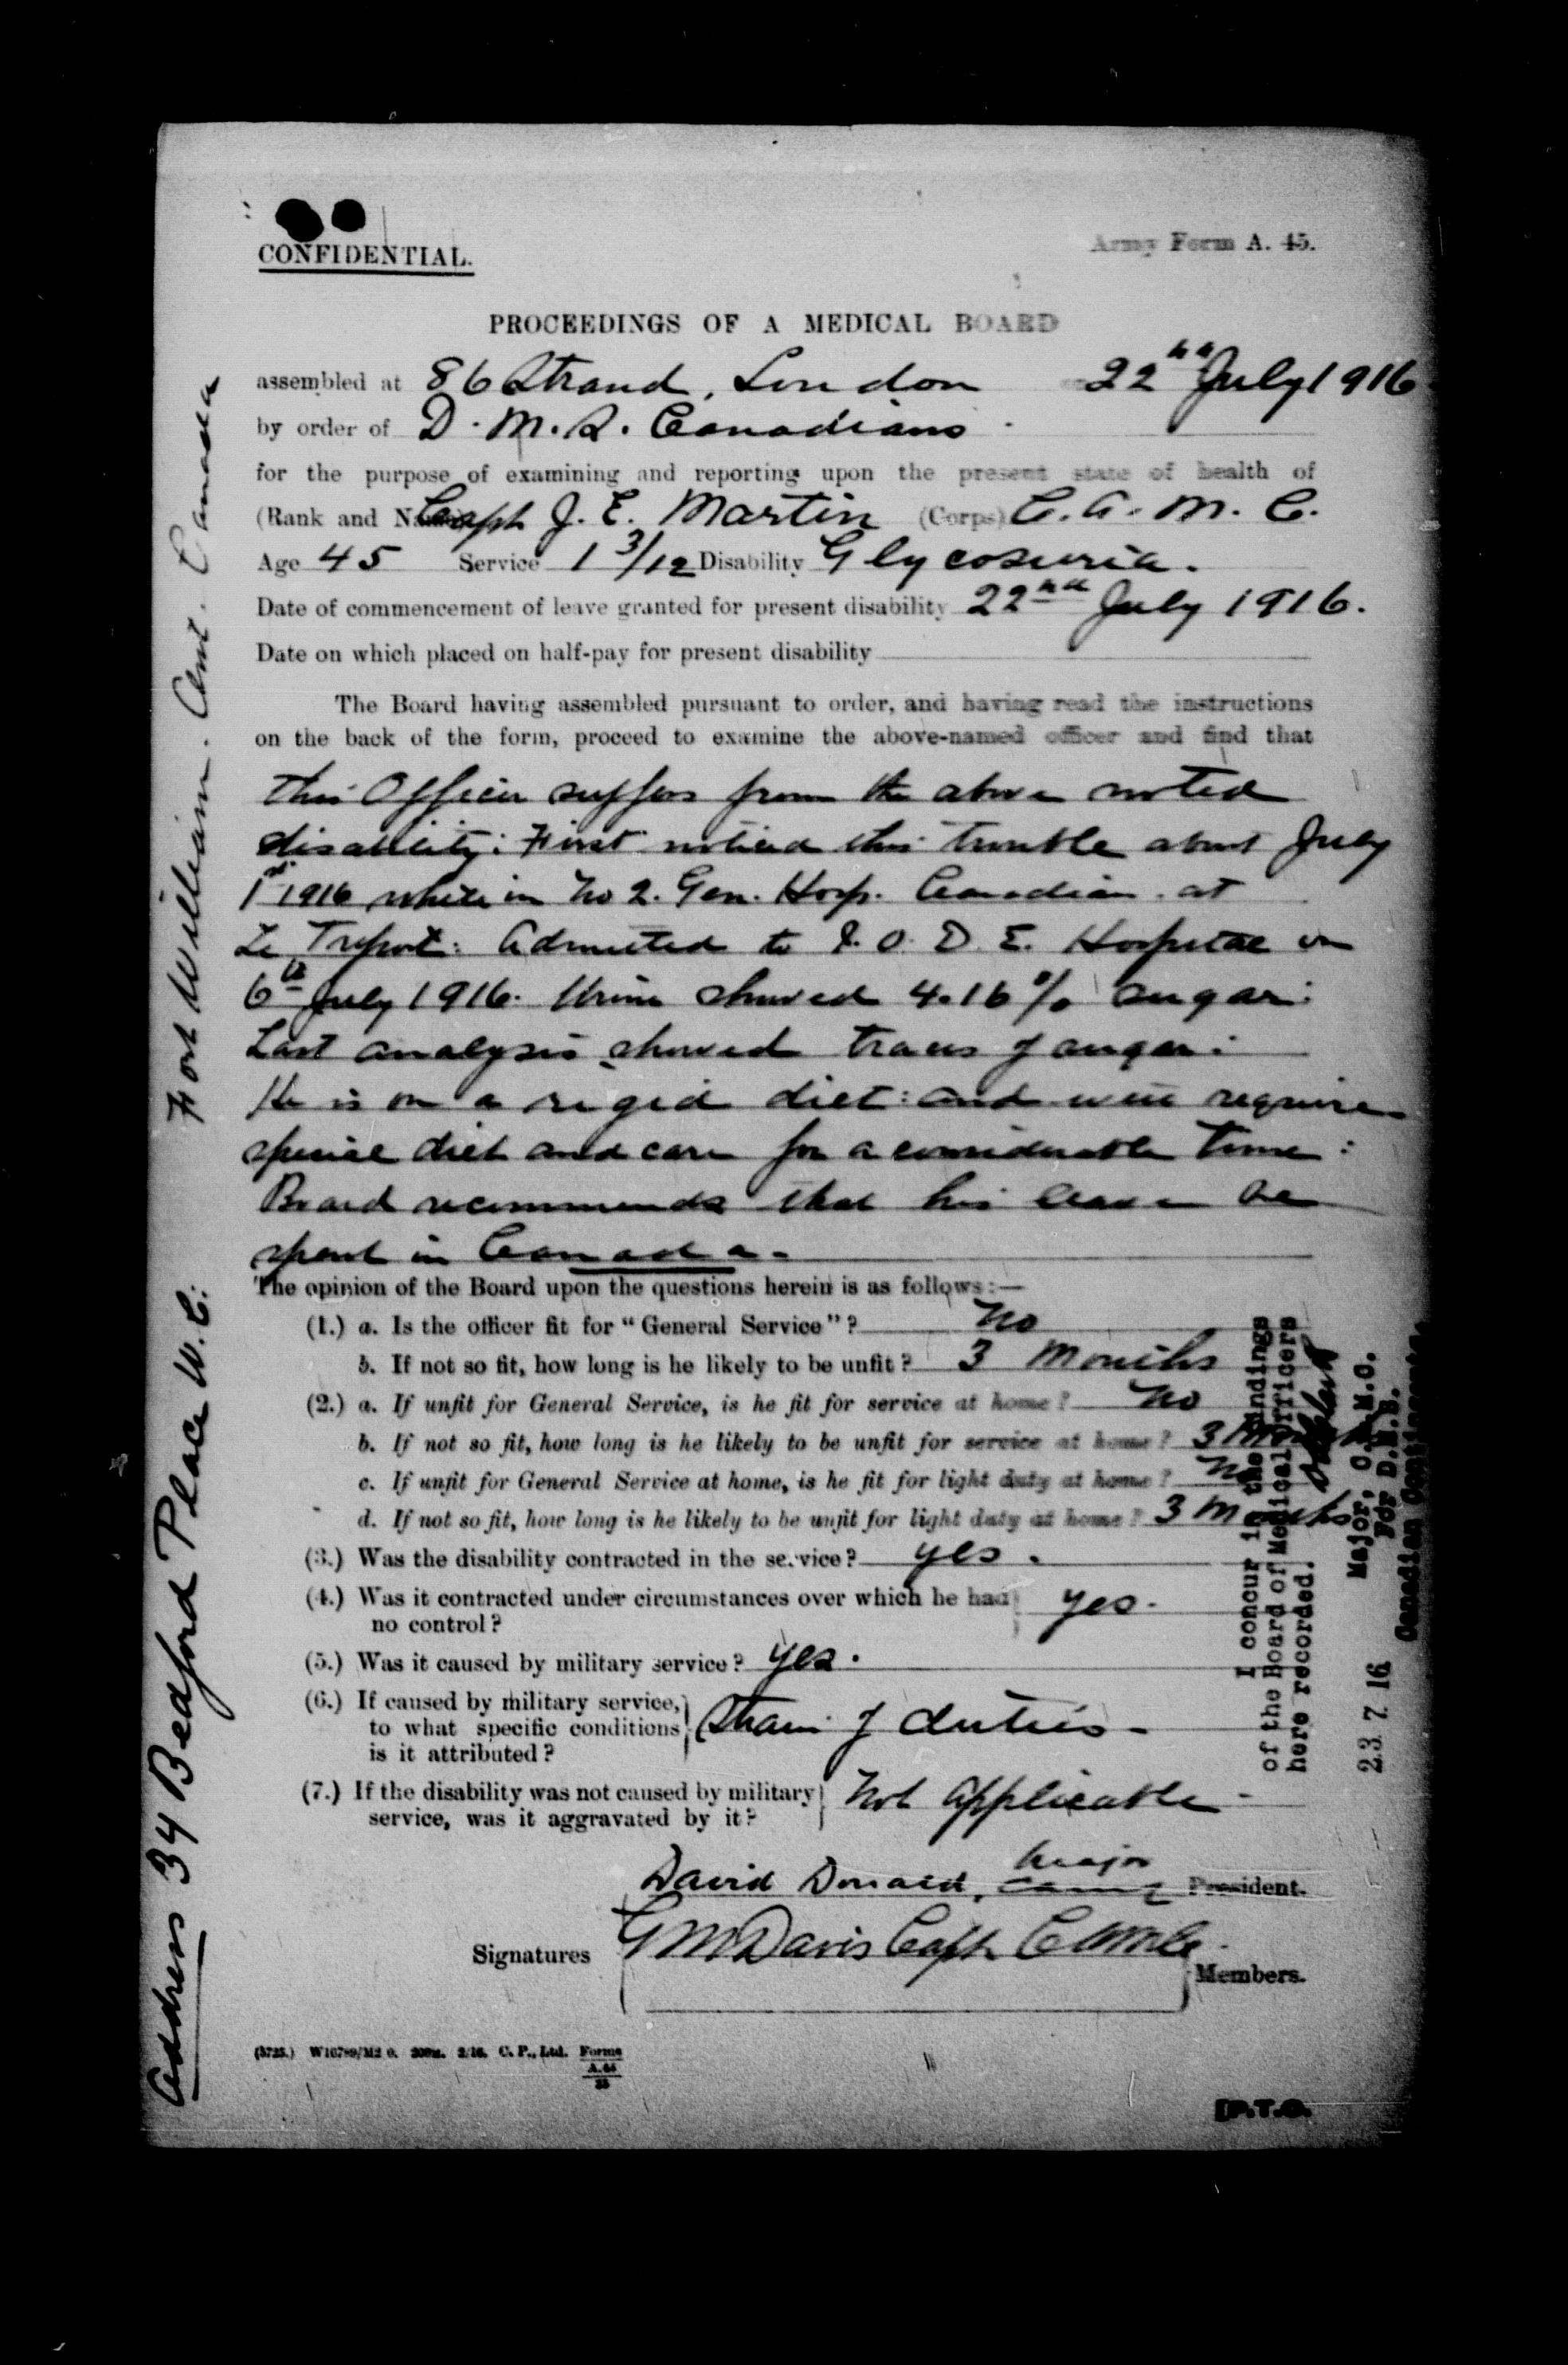 CONFIDENTIAL.
Army Form A. 45.
PROCEEDINGS OF A MEDICAL BOARD
assembled at 86 Strand, London 22nd July 1916
by order of D.M.S. Canadians
for the purpose of examining and reporting upon the present state of health of
(Rank and Name) Capt J. E. Martin (Corps) C.A.M.C.
Age 45 Service 1 3/12 Disability Glycosuria.
Date of commencement of leave granted for present disability 22nd July 1916.
Date on which placed on half-pay for present disability
The Board having assembled pursuant to order, and having read the instructions
on the back of the form, proceed to examine the above-named officer and find that
this Officer suffers from the above noted
disability: First noticed this trouble about July
1st 1916 while in No 2. Gen. Hosp. Canadian. at
Le Treport: Admitted to I.O.D.E. Hospital on
6th July 1916. Urine showed 4.16% sugar:
Last analysis showed traces of sugar:
He is on a rigid diet: and will require
special diet and care for a considerable time:
Board recommends that his leave be
spent in Canada.
The opinion of the Board upon the questions herein is as follows:—
(1.) a. Is the officer fit for "General Service"? No
b. If not so fit, how long is he likely to be unfit? 3 Months
(2.) a. If unfit for General Service, is he fit for service at home? No
b. If not so fit, how long is he likely to be unfit for service at home? 3 Months
c. If unfit for General Service at home, is he fit for light duty at home? No
d. If not so fit, how long is he likely to be unfit for light duty at home? 3 Months
(3.) Was the disability contracted in the service? yes.
(4.) Was it contracted under circumstances over which he had
no control? yes.
(5.) Was it caused by military service? yes.
(6.) If caused by military service,
to what specific conditions
is it attributed? Strain of duties-
(7.) If the disability was not caused by military
service, was it aggravated by it? Not applicable
David Donald, Major President.
Signatures G M Davis Capt CAMC
Members.
(3725.) W16789/M2 0. 200m. 2/16. C. P., Ltd. Forms
A.45
[P.T.O.
Address 34 Bedford Place W.C:
Fort William. Ont. Canada
I concur in the findings
of the Board of Medical Officers
here recorded.
Major, C.A.M.C.
For D.M.S.
Canadian Contingents.
23 7 16